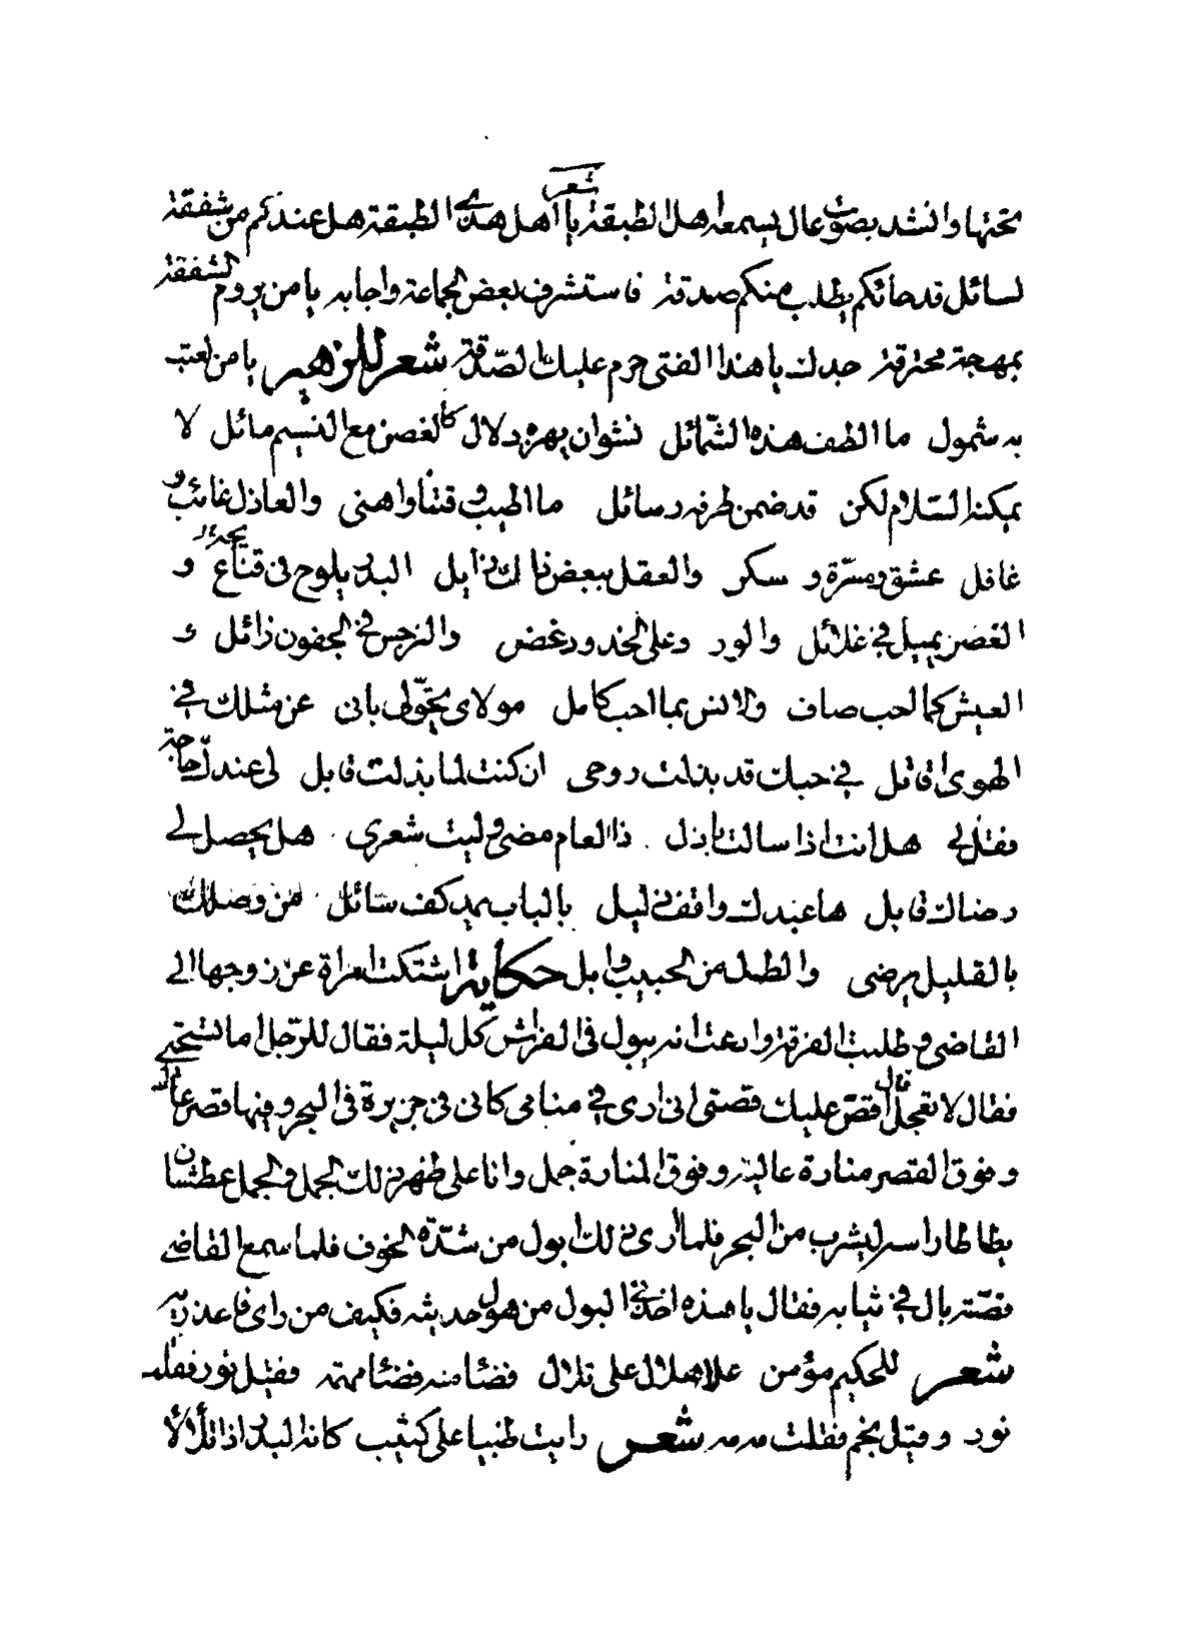 شعر
تحتها وانشد بصوت عال يسمعه اهل الطبقة يا اهل هذى الطبقة هل عندكم من شفقة
لسائل قد جائكم يطلب منكم صدقة فاستشرف بعض الجماعة واجابه يا من يروم الشفقة
بمهجة محترقة جد لنا يا هذا الفتى حرم عليك الصّدقة شعر للزهير يا من لعبت
به شمول ما الطف هذه الشّمائل نشوان يهزه دلال كالغصن مع النسيم مائل لا
يمكنه السّلام لكن قد ضمن طرفه رسائل ما اطيب وقتنا واهنى والعاذل غائب و
غافل عشق ومسّرة و سكر والعقل ببعض ذاك ذاهل البدر يلوح فى قناع و
الغصن يميل فى غلائل والورد وعلى الخدود غض والنرجس فى الجفون ذابل و
العيش كما احب صاف والانس بما احب كامل مولاى يحق لى بانى عن مثلك فى
الهوى اقاتل فى حبك قد بذلت روحى ان كنت لما بذلت قابل لى عندك حاجة
فقل لى هل انت اذا سالت باذل ذا العام مضى وليت شعرى هل يحصل لى
رضاك قابل ها عبدك واقف ذليل بالباب يمد كف سائل من وصلك
بالقليل يرضى والطل من الحبيب وابل حكاية اشتكت امراة عن زوجها الى
القاضى وطلبت الفرقة وادعت انه يبول فى الفراش كل ليلة فقال للرّجل اما تستحيى
فقال لا تعجل اقصّ عليك قصتى انى ارى فى منامى كانى فى جزيرة فى البحر وفيها قصر عال
وفوق القصر منارة عالية وفوق المنارة جمل وانا على ظهر ذلك الجمل والجمل عطشان
يطاطا راسه ليشرب من البحر فلما ارى ذلك ابول من شدّة الخوف فلما سمع القاضى
قصّته بال فى ثيابه فقال يا هذه اخذنى البول من هول حديثه فكيف من راى فاعذريه
شعر للحكيم مؤمن علا هلال على تلال فضئا منه فضئا مهمه فقيل نور فقلت
نور وقيل نجم فقلت مه مه شعر رايت ظبيا على كثيب كانه البدر اذا تلألأ